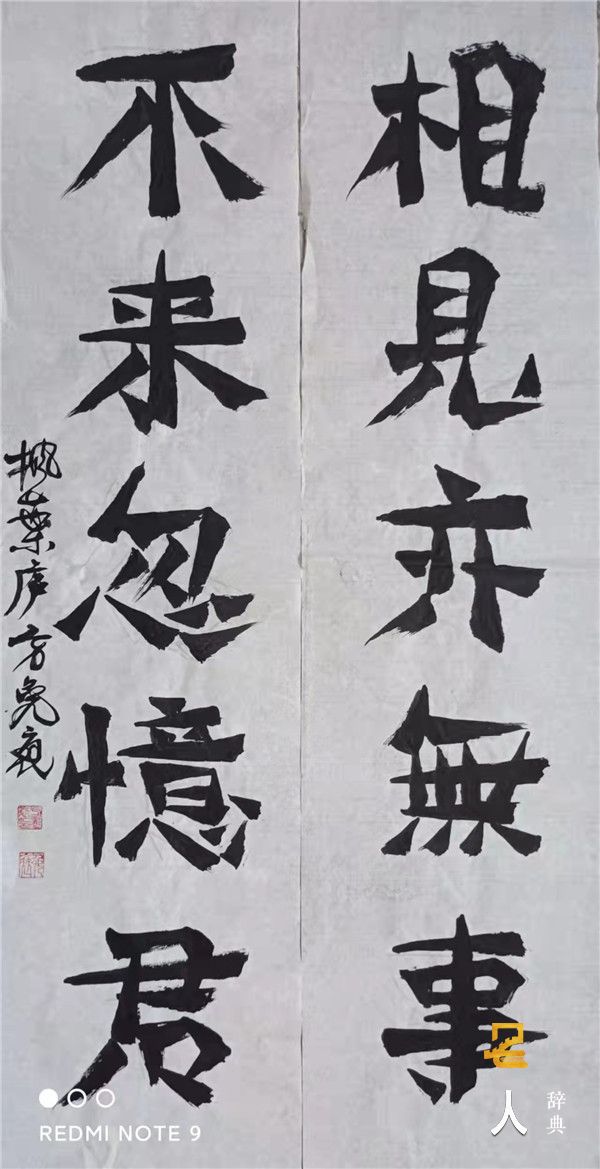 相見亦無事
不来忽憶君
楓葉庐方
REDMI NOTE 9
名人
辞典